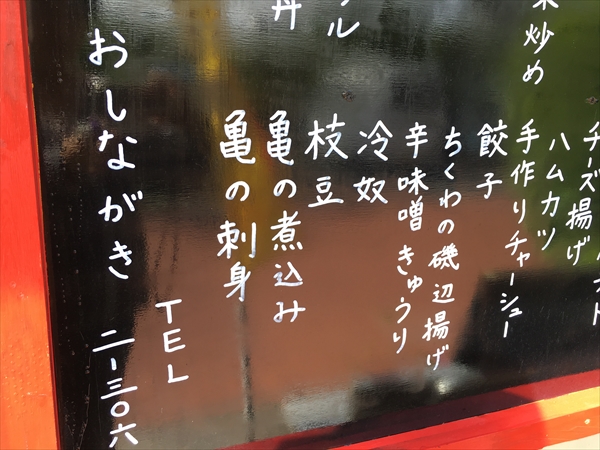 炒め
チーズ揚げ
ハムカツ
手作りチャーシュー
餃子
ちくわの磯辺揚げ
辛味噌きゅうり
冷奴
枝豆
ル
亀の煮込み
丹
亀の刺身
TEL
おしながき
二-三〇六